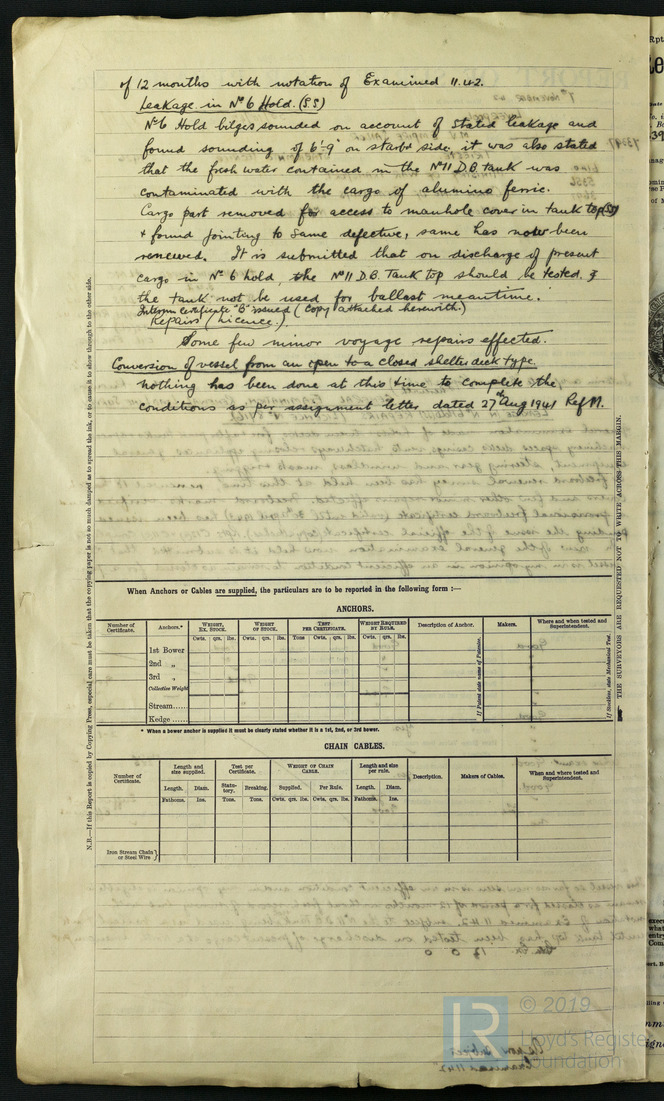 of 12 months with notation of Examined 11.42.
Leakage in Nº 6 Hold. (SS)
Nº 6 Hold bilges sounded on account of stated leakage and
found sounding of 6'-9" on starbd side, it was also stated
that the fresh water contained in the Nº 11 D.B. tank was
contaminated with the cargo of alumino ferric.
Cargo part removed for access to manhole cover in tank top (SS)
& found jointing to same defective, same has now been
renewed. It is submitted that on discharge of present
cargo in Nº 6 hold, the Nº 11 D.B. Tank top should be tested &
the tank not be used for ballast meantime.
Interim certificate "B" issued (copy attached herewith.)
Repairs (Licence.).
Some few minor voyage repairs effected.
Conversion of vessel from an open to a closed shelter deck type.
nothing has been done at this time to complete the
conditions as per assignment letter dated 27th Aug 1941 Ref M.
When Anchors or Cables are supplied, the particulars are to be reported in the following form :—
ANCHORS.
Number of Certificate. Anchors.* WEIGHT, EX. STOCK. WEIGHT OF STOCK. TEST PER CERTIFICATE. WEIGHT REQUIRED BY RULE. Description of Anchor. Makers. Where and when tested and Superintendent.
Cwts. qrs. lbs. Cwts. qrs. lbs. Tons Cwt. qrs. lbs. Cwts. qrs. lbs.
1st Bower
2nd „
3rd „
Collective Weight
Stream......
Kedge ......
If Patent state name of Patentee.
If Stockless, state Mechanical Test.
* When a bower anchor is supplied it must be clearly stated whether it is a 1st, 2nd, or 3rd bower.
CHAIN CABLES.
Number of Certificate. Length and size supplied. Test per Certificate. WEIGHT OF CHAIN CABLE. Length and size per rule. Description. Makers of Cables. When and where tested and Superintendent.
Length. Diam. Statutory. Breaking. Supplied. Per Rule. Length. Diam.
Fathoms. Ins. Tons. Tons. Cwts. qrs. lbs. Cwts. qrs. lbs. Fathoms. Ins.
Iron Stream Chain or Steel Wire }
N.B.—If this Report is copied by Copying Press, especial care must be taken that the copying paper is not so much damped as to spread the ink, or to cause it to show through to the other side.
THE SURVEYORS ARE REQUESTED NOT TO WRITE ACROSS THIS MARGIN.
© 2019
LR
Lloyd's Register
Foundation